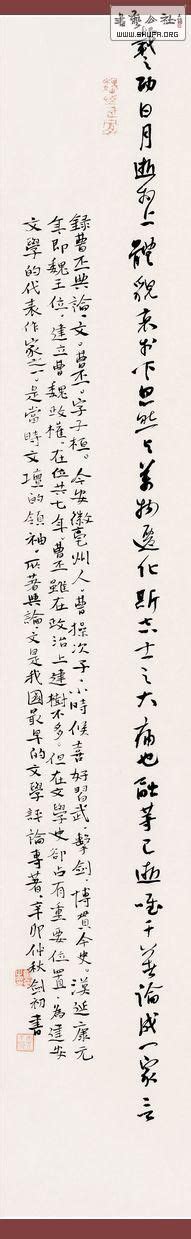 書藝公社
WWW.SHUFA.ORG
載之功日月逝於上體貌衰於下忽然與萬物遷化斯志士之大痛也融等已逝唯幹著論成一家言
錄曹丕典論·文。曹丕。字子桓。今安徽亳州人。曹操次子。小時候喜好習武·擊劍·博貫今史。漢延康元
年即魏王位·建立曹魏政權。在位共七年。曹丕雖在政治上建樹不多。但在文學史卻占有重要位置·為建安
文學的代表作家之一。是當時文壇的領袖。所著典論·文是我國最早的文學評論專著。辛卯仲秋劍初書